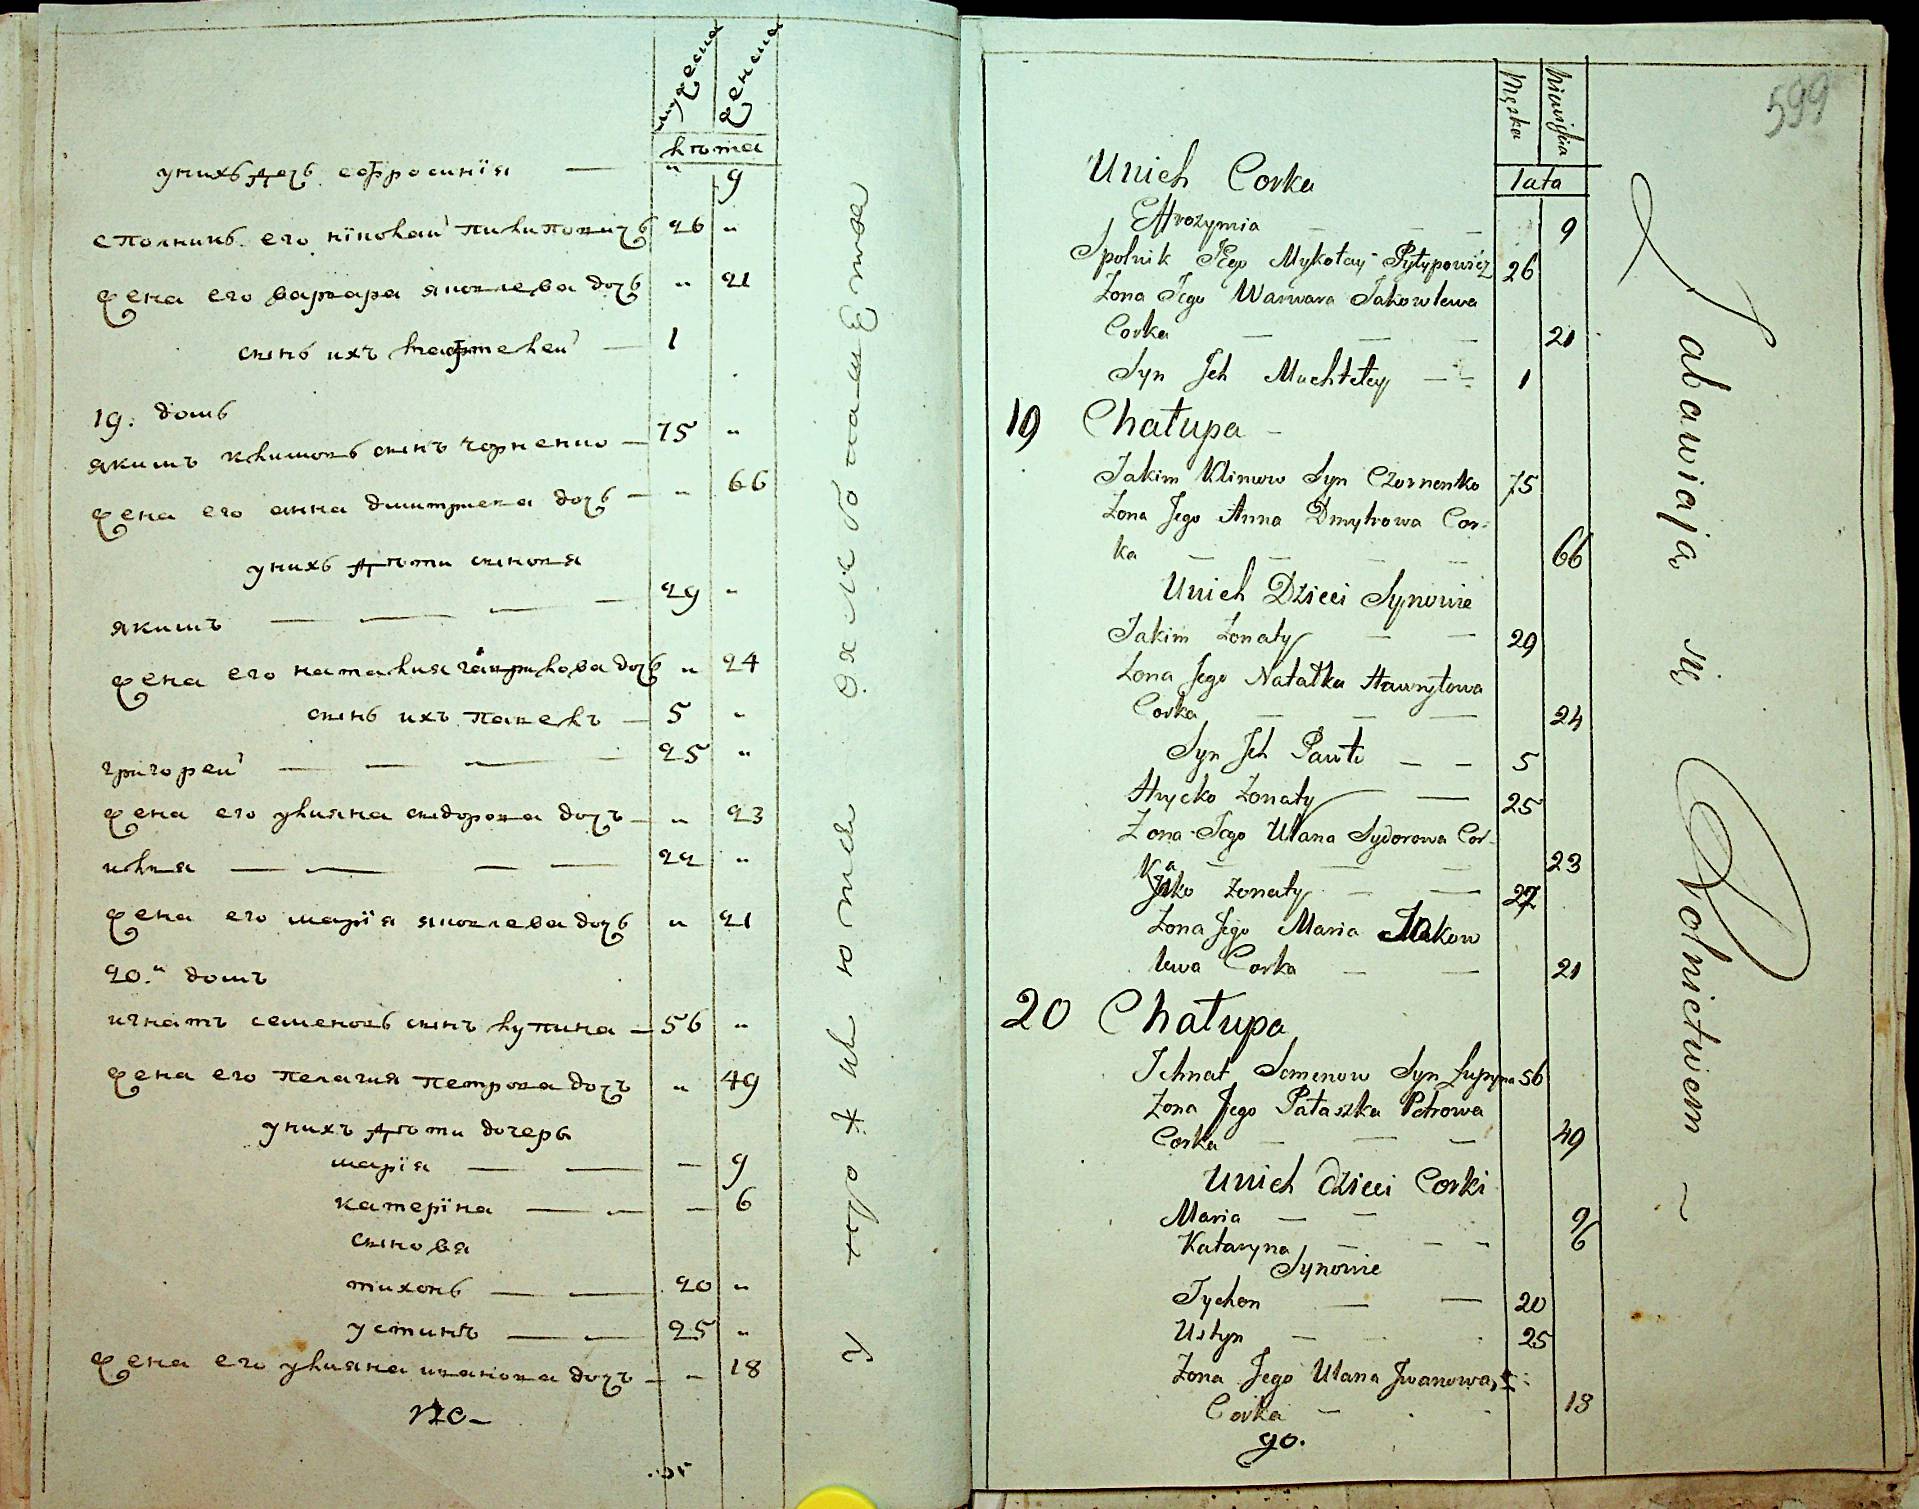 мужеска
женска
лѣта
унихъ дочь ефросинїя — " 9
сполникъ его нїколай пилиповичъ 26 "
жена его варвара яковлева дочь " 21
сынъ ихъ — 1
19: домъ
якимъ климовъ сынъ чорненко — 75 "
жена его анна дмитрева дочь — " 66
унихъ дѣти синовя
якимъ — — — 29 "
жена его наталия гаврилова дочь " 24
сынъ ихъ павелъ — 5 "
григорей — — — — 25 "
жена его улияна сидорова дочъ — " 23
илия — — — — 22 "
жена его марїя яковлева дочь " 21
20." домъ
игнатъ семеновъ сынъ лупина — 56 "
жена его пелагия петрова дочъ " 49
унихъ дѣти дочерь
марїя — — — 9
катерїна — — — 6
синовя
тихонъ — — 20 "
устинъ — — 25 "
жена его улияна иванова дочъ — " 18
Męska
Niewieścia
599
Lata
Unich Corka
Effrozymia — — 9
Spolnik Jego Mykołay Pyłypowicz 26
Zona Jego Warwara Jakowlewa
Corka — — — 21
Syn Jch Machteley — — 1
19 Chałupa —
Jakim Klimow Syn Czornenko 75
Zona Jego Anna Dmytrowa Cor-
ka — — — 66
Unich Dzieci Synowie
Jakim Zonaty — — 29
Zona Jego Natałka Hawryłowa
Corka — — — 24
Syn Jch Pawło — — 5
Hrycko Zonaty — 25
Zona Jego Ulana Sydorowa Cor-
ka — — — 23
Jlko Zonaty — — 22
Zona Jego Maria Jakow
lewa Corka — — 21
20 Chałupa
Jchnat Semenow Syn Łupyna 56
Zona Jego Pałaszka Petrowa
Corka — — — 49
Unich dzieci Corki
Maria — — 9
Kataryna — — — 6
Synowie
Tychon — — 20
Ustyn — — 25
Zona Jego Ulana Jwanowa
Corka — 18
90.
Zabawiają się Rolnictwem ~